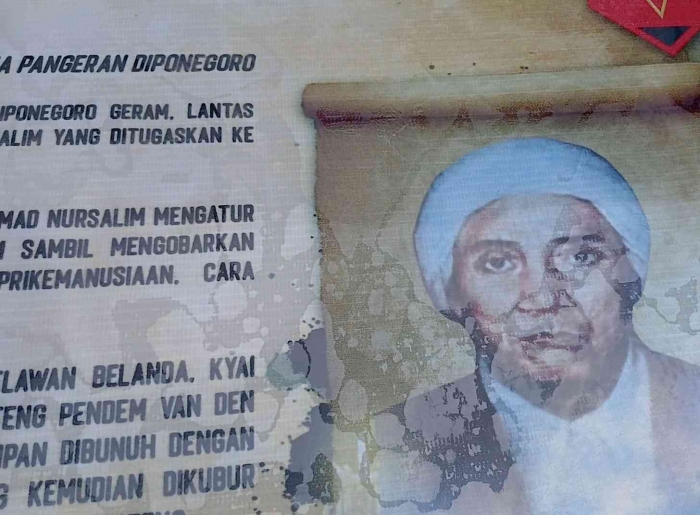 PANGERAN DIPONEGORO
DIPONEGORO GERAM, LANTAS
YANG DITUGASKAN KE
NURSALIM MENGATUR
SAMBIL MENGOBARKAN
PRIKEMANUSIAAN. CARA
BELANDA, KYAI
PENDEM VAN DEN
DIBUNUH DENGAN
KEMUDIAN DIKUBUR